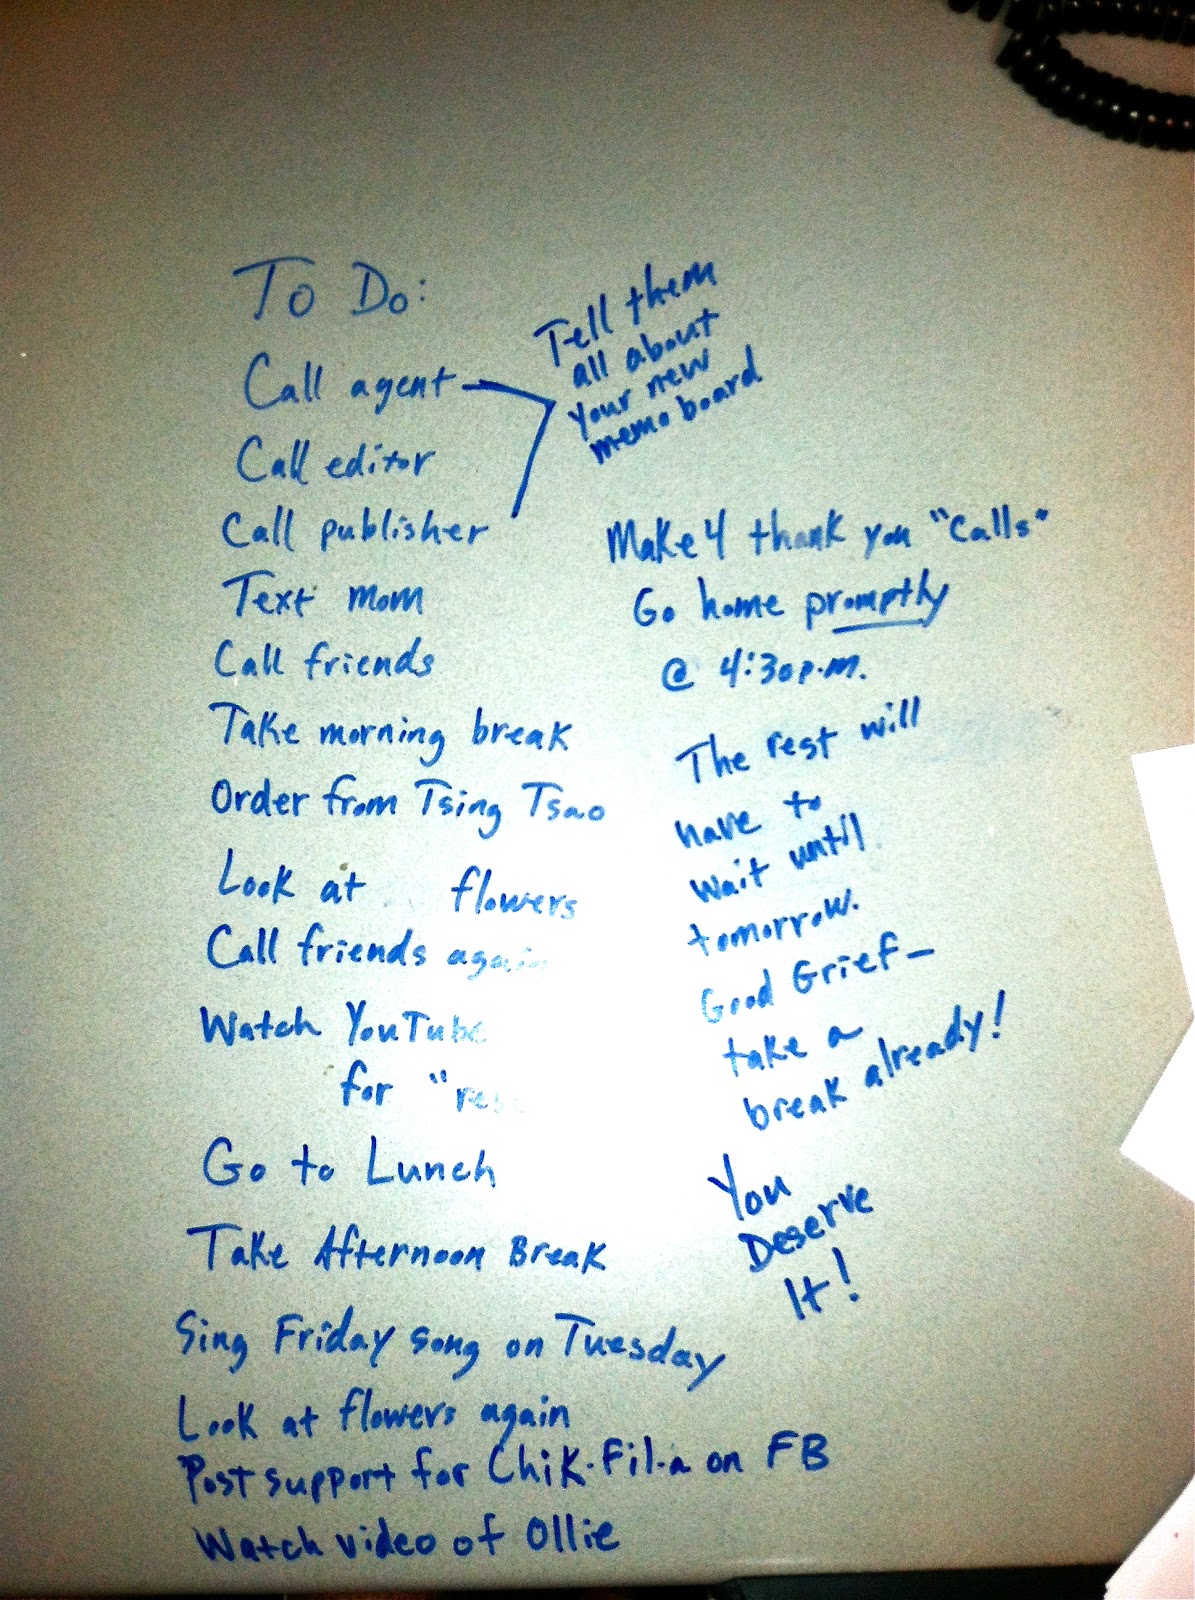 To Do:
Call agent
Call editor
Call publisher
Tell them
all about
your new
memo board
Text mom
Call friends
Take morning break
Order from Tsing Tsao
Look at flowers
Call friends again
Watch YouTube
for "res
Go to Lunch
Take Afternoon Break
Sing Friday song on Tuesday
Look at flowers again
Post support for Chik-Fil-a on FB
Watch video of Ollie
Make 4 thank you "calls"
Go home promptly
@ 4:30 p.m.
The rest will
have to
wait until
tomorrow.
Good Grief—
take a
break already!
You
Deserve
It!